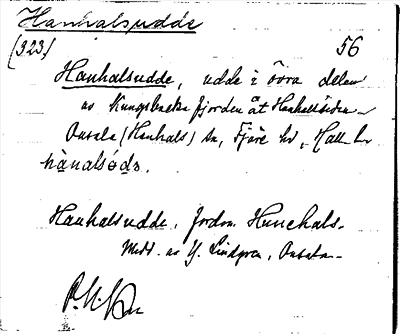 Hanhalsudde
(323) 56
Hanhalsudde, udde i övra delen
av Kungsbacka fjorden åt Hanhalssidan
Onsala (Hanhals) sn, Fjäre hd, Hall. län
hànalsóds.
Hanhalsudde, fordom Hunehals.
Medd. av G. Lindgren, Onsala